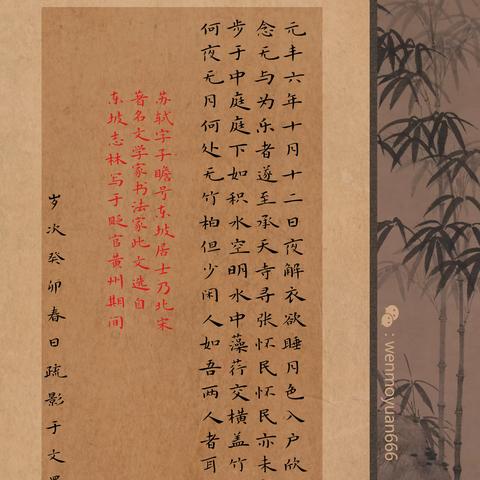 元丰六年十月十二日夜解衣欲睡月色入户欣
念无与为乐者遂至承天寺寻张怀民怀民亦未
步于中庭庭下如积水空明水中藻荇交横盖竹
何夜无月何处无竹柏但少闲人如吾两人者耳
苏轼字子瞻号东坡居士乃北宋
著名文学家书法家此文选自
东坡志林写于贬官黄州期间
岁次癸卯春日疏影于文
: wenmoyuan666